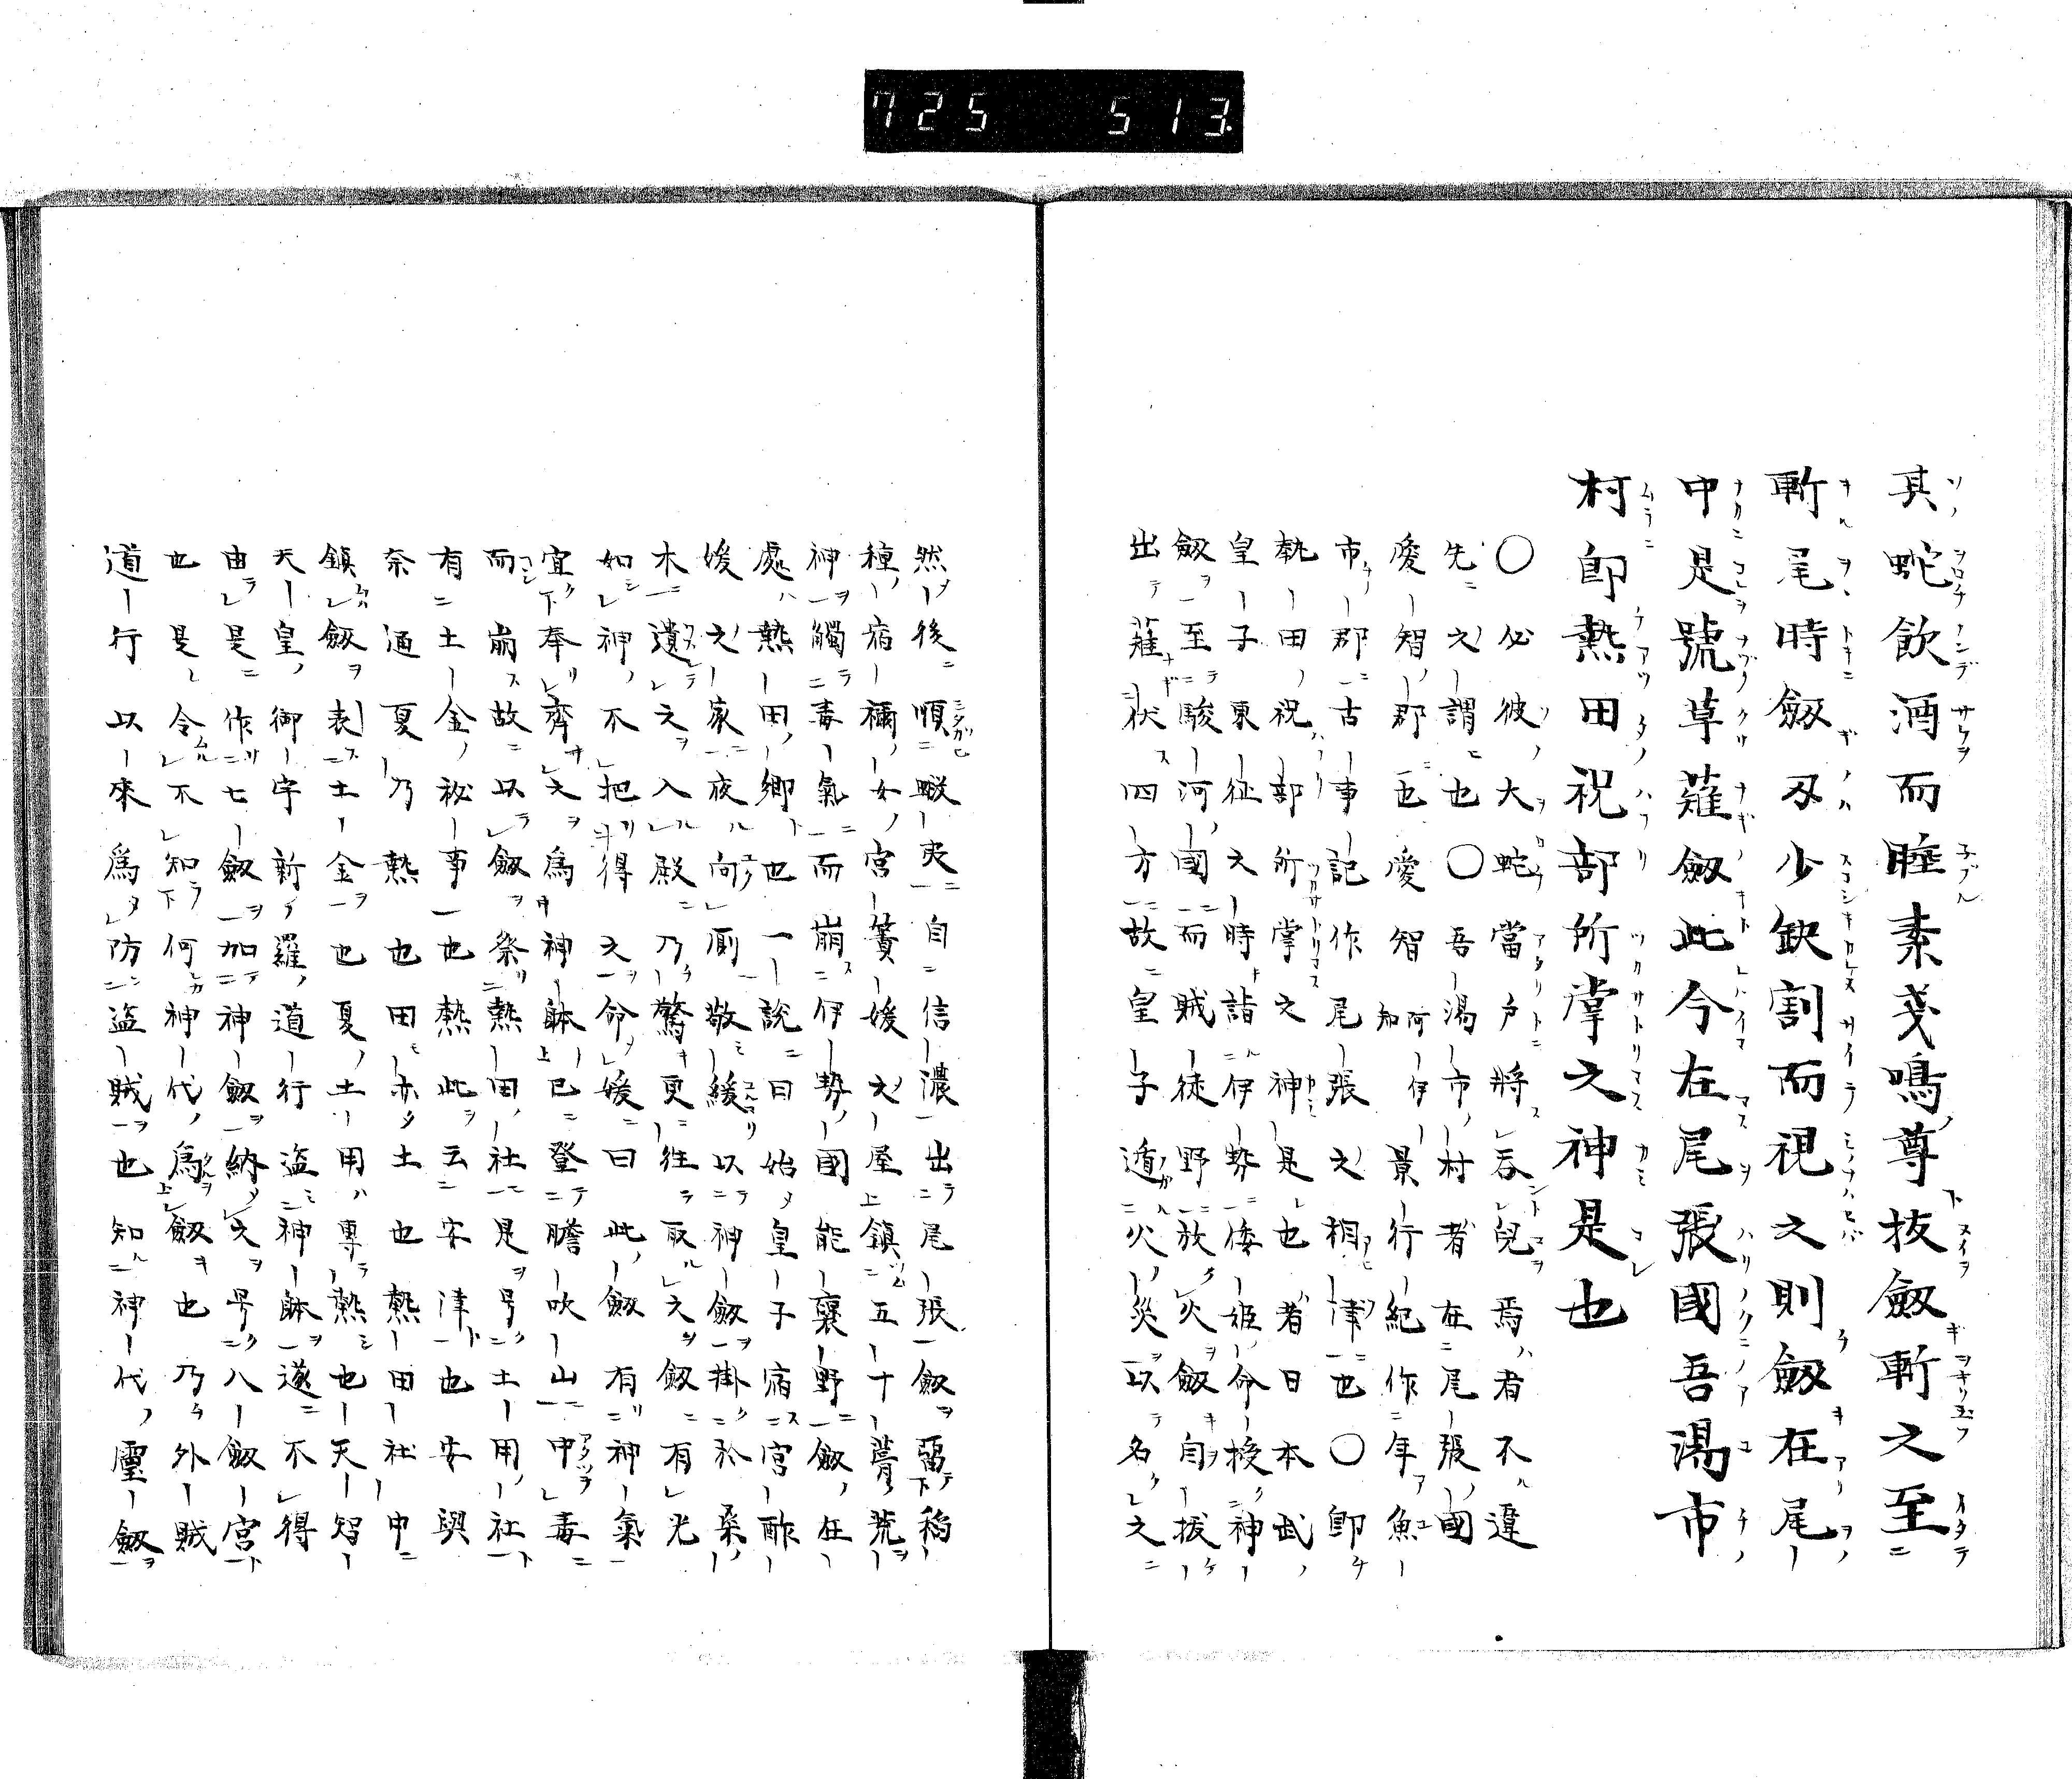 725 513.
其蛇飲酒而睡素戔嗚尊抜劔斬之至
斬尾時劔刃少缺割而視之則劔在尾
中是號草薙劔此今在尾張國吾湯市
村即熱田祝部所掌之神是也
〇必彼大蛇當戸將呑兒焉者不違
先之謂也〇吾湯市村者在尾張國
愛智郡也愛智阿伊知景行紀作年魚
市郡古事記作尾張之相津也〇即
熱田祝部所掌之神是也者日本武
皇子東征之時詣伊勢倭姫命授神
劔至駿河國而賊徒野放火劔自抜
出薙状四方故皇子遁火災以名之
然後順蝦夷自信濃出尾張劔留稲
種宿禰女宮簀媛之屋鎮五十功荒
神觸毒氣而崩伊勢國能褒野劔在
處熱田郷也一説曰始皇子宿宮酢
媛之家夜向厠敬緩以神劔掛於桑
木遺之入殿乃驚更往取之劔有光
如神不把得之命媛曰此劔有神氣
宜奉齊之為神躰已登膽吹山中毒
而崩故以劔祭熱田社是号土用社
有土金秘事也熱此云安津也安與
奈通夏乃熱也田亦土也熱田社中
鎮劔表土金也夏土用專熱也天智
天皇御宇新羅道行盗神躰遂不得
由是作七劔加神劔納之号八劔宮
也是令不知何神代為劔也乃外賊
道行以來為防盗賊也知神代靈劔